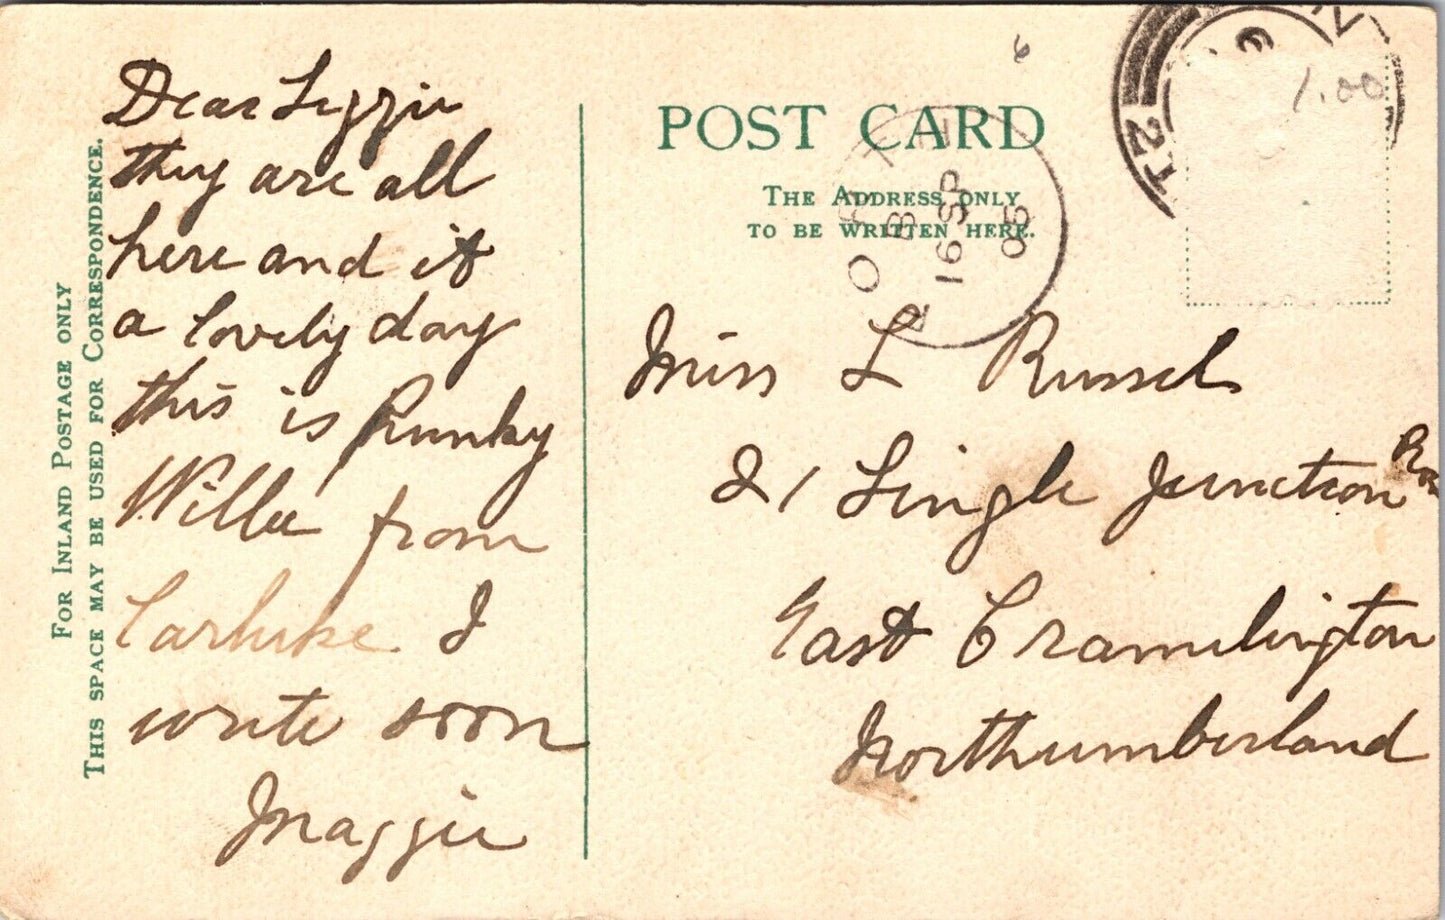 FOR INLAND POSTAGE ONLY
THIS SPACE MAY BE USED FOR CORRESPONDENCE.
Dear Lizzie
they are all
here and it
a lovely day
this is
Willie from
Carluke I
write soon
Maggie
POST CARD
THE ADDRESS ONLY
TO BE WRITTEN HERE.
B
16 SP
05
1.00
Miss L Russel
21 Single Junction Row
East Cramilington
Northumberland